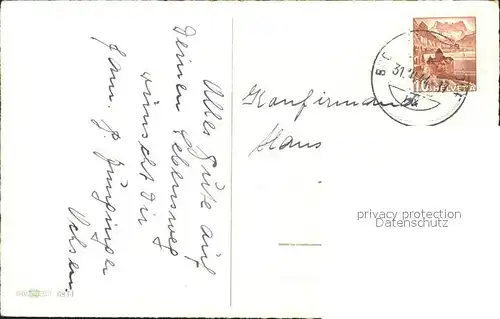 Alles Gute auf
Deinem Lebensweg
wünscht Dir
Fam.
Ochsen.
Konfirmand
Hans
31.
10
HELVETIA
privacy protection
Datenschutz